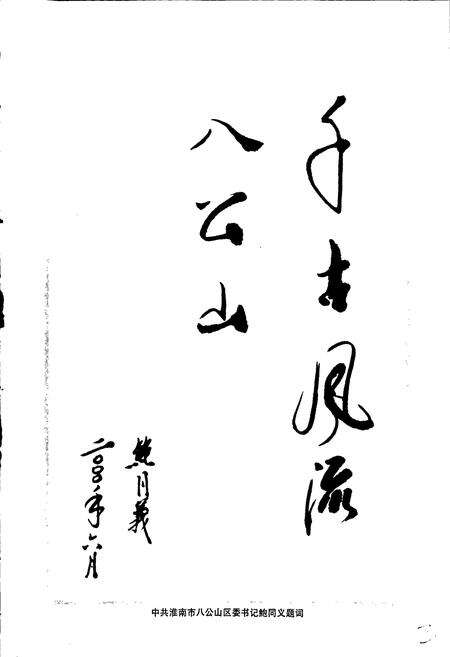 千古风流
八公山
鲍同义
二〇〇八年六月
中共淮南市八公山区委书记鲍同义题词